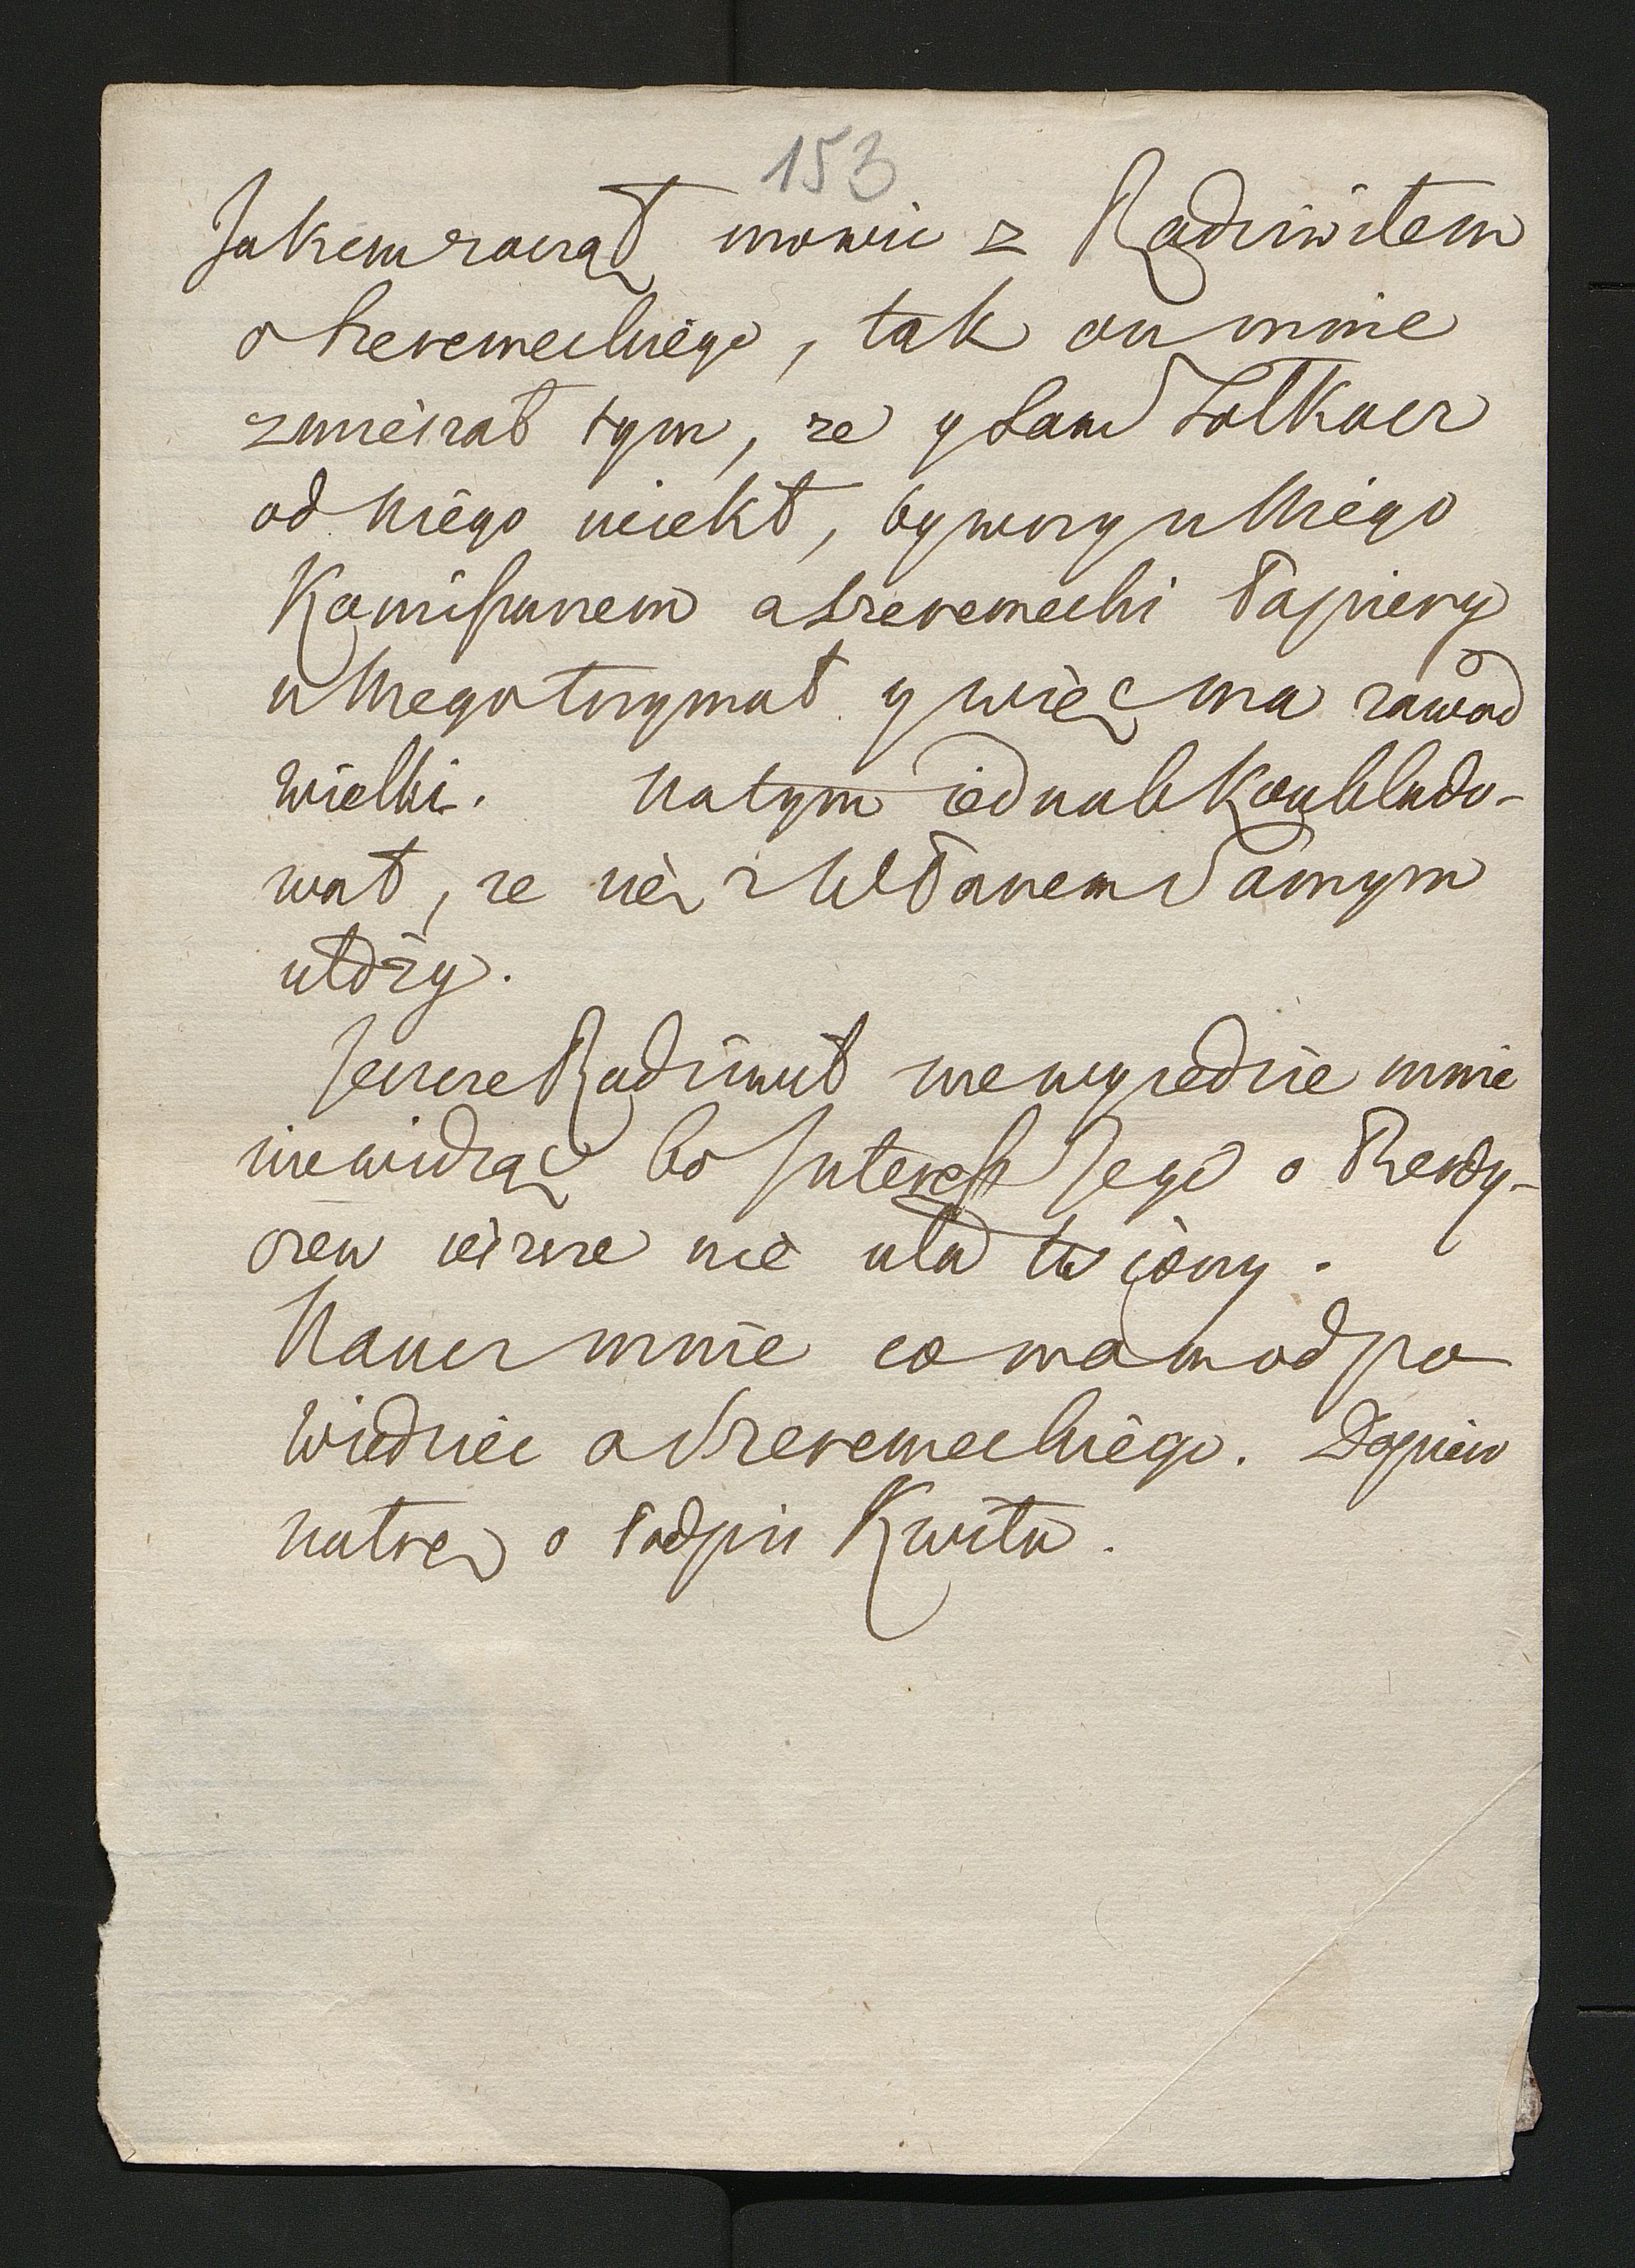 153
Jakem zaczął mowic z Radziwiłem
o Szeremeckiego, tak on mnie
zmieszał tym, ze y Sam Tołkacz
od Niego uciekł, bywszy u Niego
Komisarzem a Szeremecki Papiery
u Niego trzymał y więc ma zawod
wielki. Na tym iednak konkludo-
wał, ze się z WPanem Samym
ułoży.
Jeszcze Radziwił nie wyiedzie mnie
nie widząc bo Interess Jego o Rendy-
ieszcze nie ułatwiony.
Naucz mnie co mam odpo
wiedziec o Szeremeckiego. Dopiero
natrę o Podpis Kwitu.